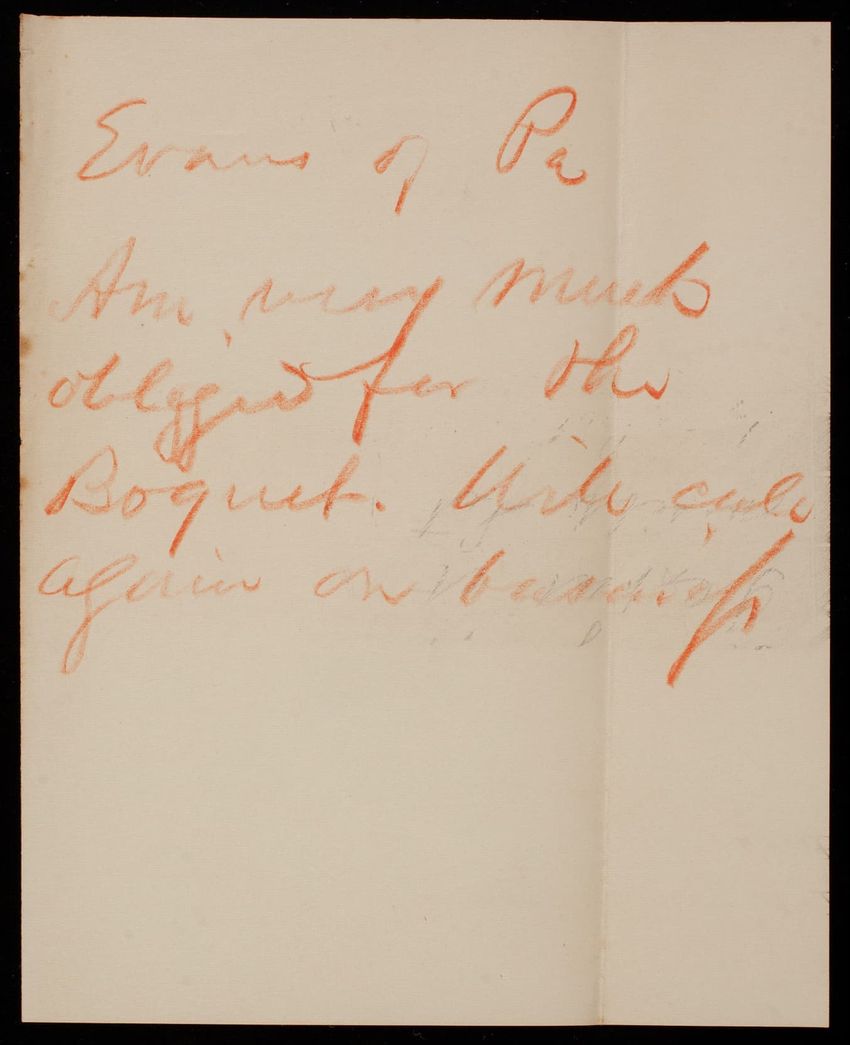 Evans of Pa
Am very much
obliged for the
Boquet. Will call
again on